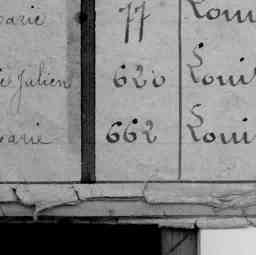 arie 77 Loui
Julien 620 Loui
arie 662 Loui